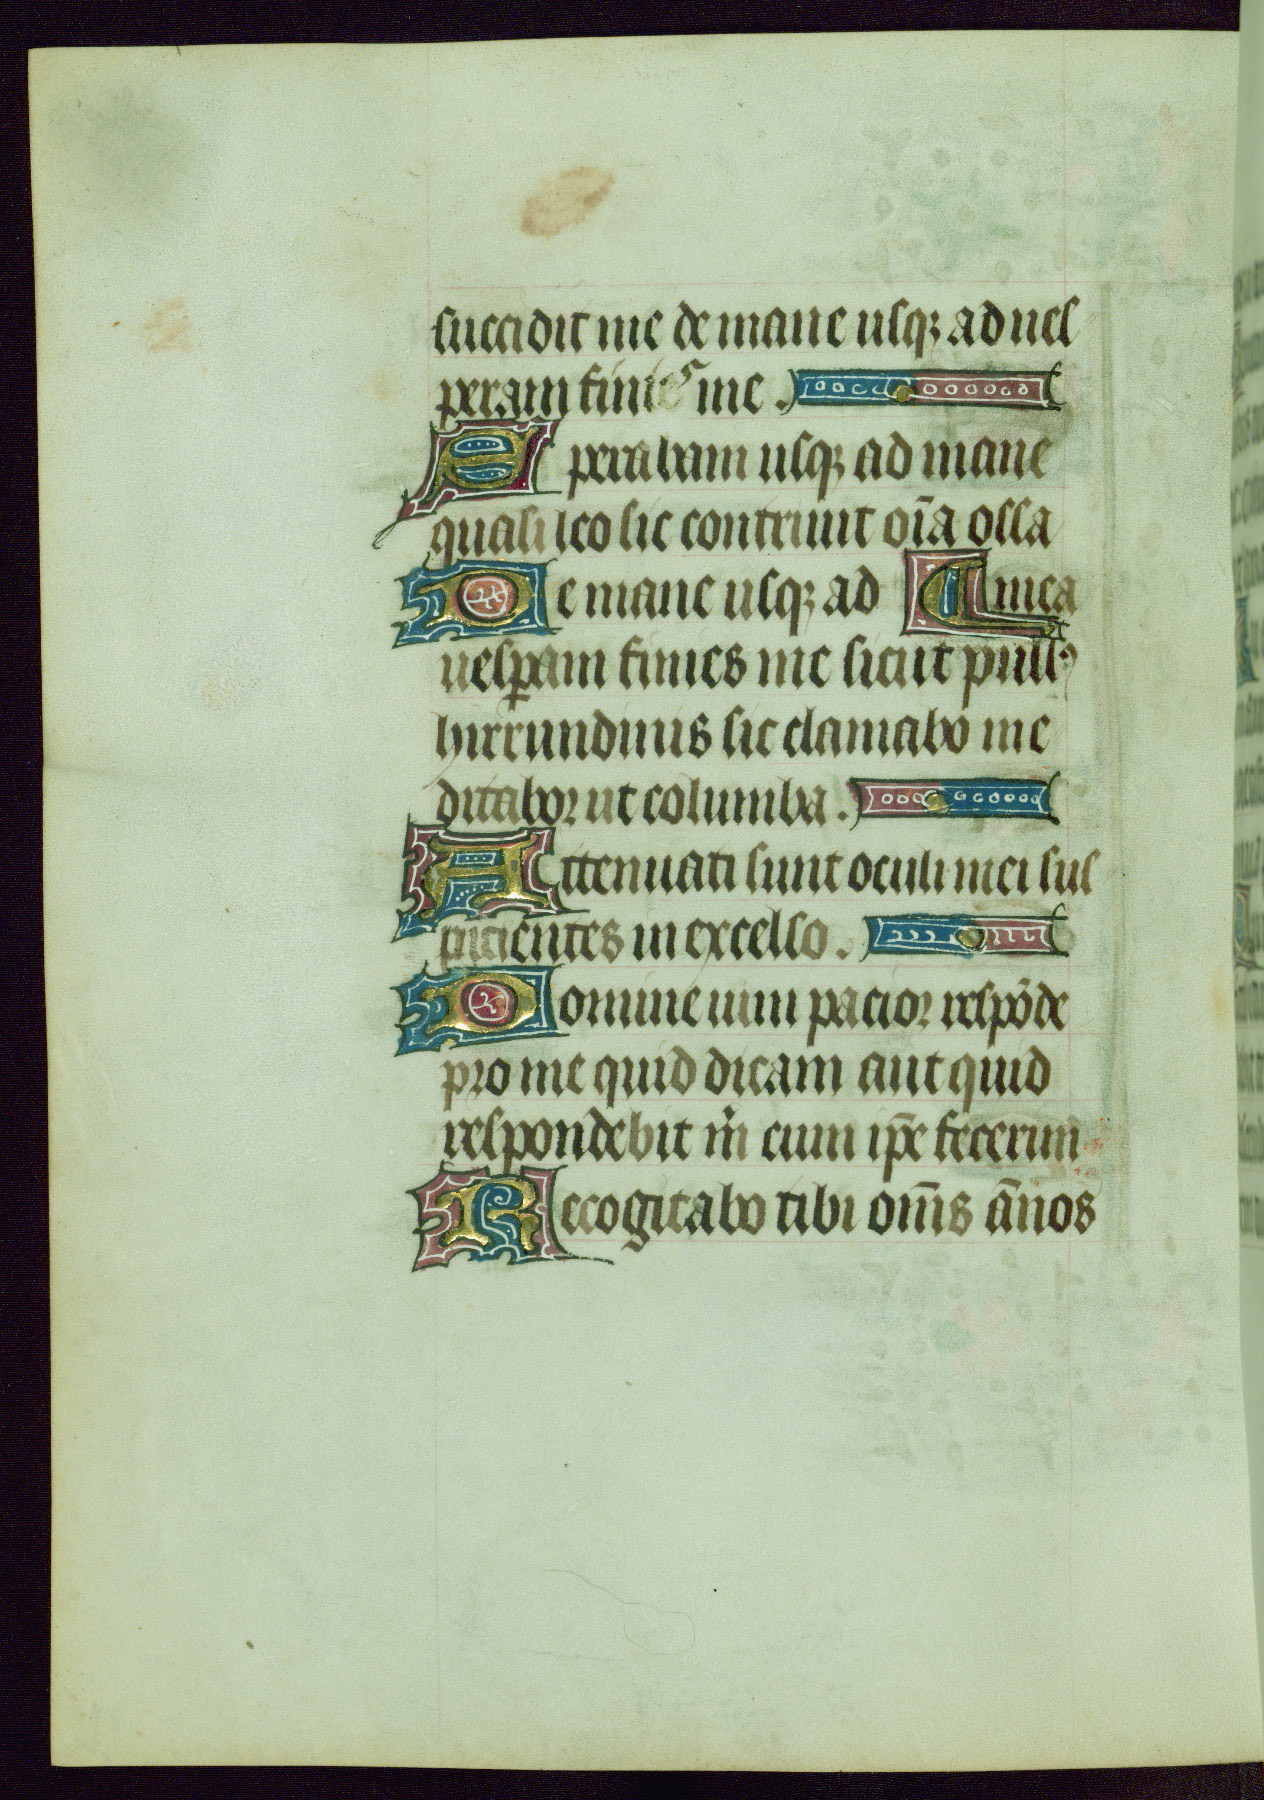 succidit me de mane usq; ad ues
peram finies me .
Sperabam usq; ad mane
quasi leo sic contriuit oīa ossa
De mane usq; ad mea
uesꝑam finies me sicut pull9
hirrundinis sic clamabo me
ditabor ut columba .
Attenuati sunt oculi mei sus
picientes in excelso .
Domine uim pacior respōde
pro me quid dicam aut quid
respondebit m̄ cum ip̄e fecerim
Recogitabo tibi om̄s ān̄os